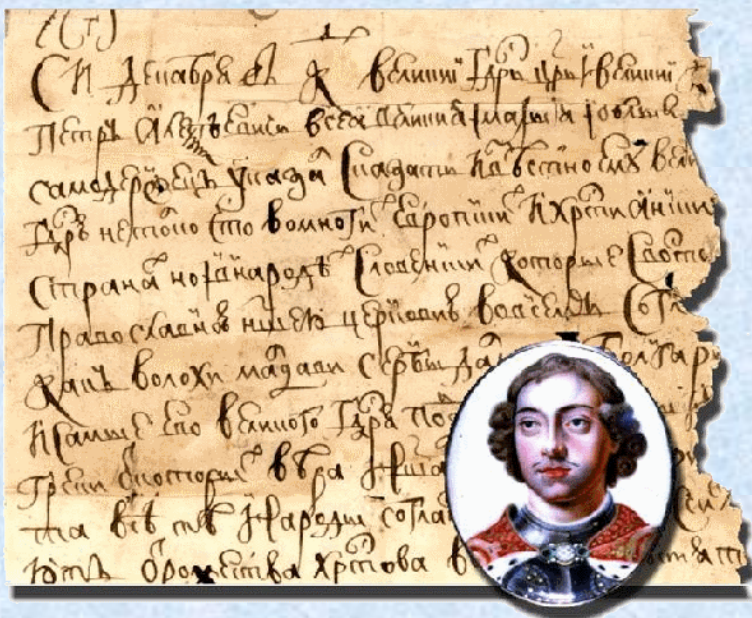 (СТ)
СИ декабря въ К великиі гдрь црь і великиі
Петръ Алеѯѣевичь всеа великиа і малыа і бѣлыа
самодержецъ указа сказати извѣстно ему вели
гдрю не толко что во многи европскихъ хрстиански
страна но і в народѣ словенски которые с восто
православною ншею церковию во всемъ согл
какъ волохи молдави сербы дал болгари
и самые его великого гдря по
греки от которы вѣра нша
та всѣ тѣ народы согла
ютъ от рожества хрстова в